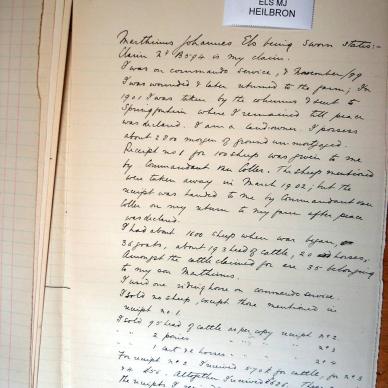 ELS MJ
HEILBRON
Marthinus Johannes Els being sworn states:-
Claim No B594 is my claim.
I was on commando service, 8 November/99
I was wounded & later returned to the farm; In
1901 I was taken by the columns & sent to
Springfontein where I remained till peace
was declared. I am a landowner. I possess
about 2800 morgen of ground un-mortgaged.
Receipt no 1 for 100 sheep was given to me
by Commandant van Coller. The sheep mentioned
were taken away in March 1902; but the
receipt was handed to me by Commandant van
Coller on my return to my farm after peace
was declared.
I had about 1600 sheep when war began,
36 goats, about 192 head of cattle, 20 horses.
Amongst the cattle claimed for are 35 belonging
to my son Marthinus.
I used one riding horse on commando service.
I sold no sheep, except those mentioned in
receipt no 1.
I sold 95 head of cattle as per copy receipt no 2
" " 2 ponies " " " no 3
" " 1 cart & 2 horses " " no 4
For receipt no 2 I received £708 for cattle, for no 3
Altogether I received
the receipts I